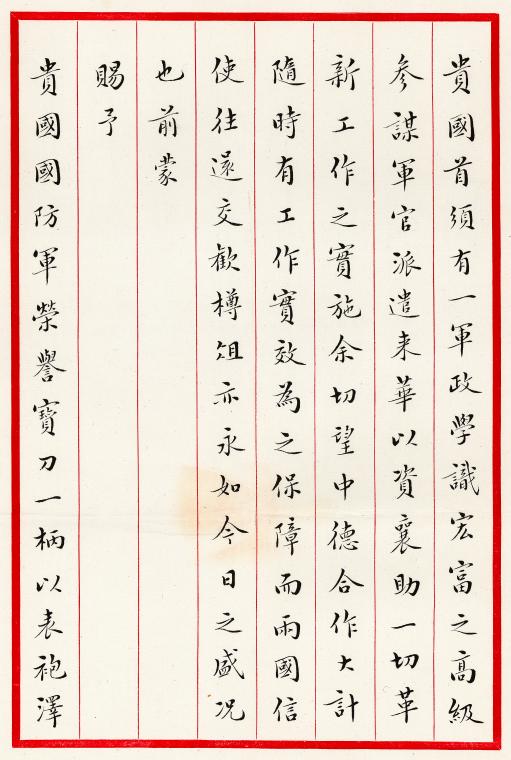 貴國首須有一軍政學識宏富之高級
參謀軍官派遣来華以資襄助一切革
新工作之實施余切望中德合作大計
隨時有工作實效為之保障而兩國信
使往還交歡樽俎亦永如今日之盛况
也前蒙
賜予
貴國國防軍榮譽寶刀一柄以表袍澤